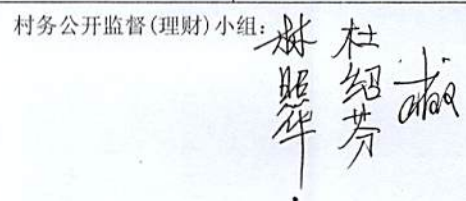 村务公开监督(理财)小组:
林照华
杜绍芬